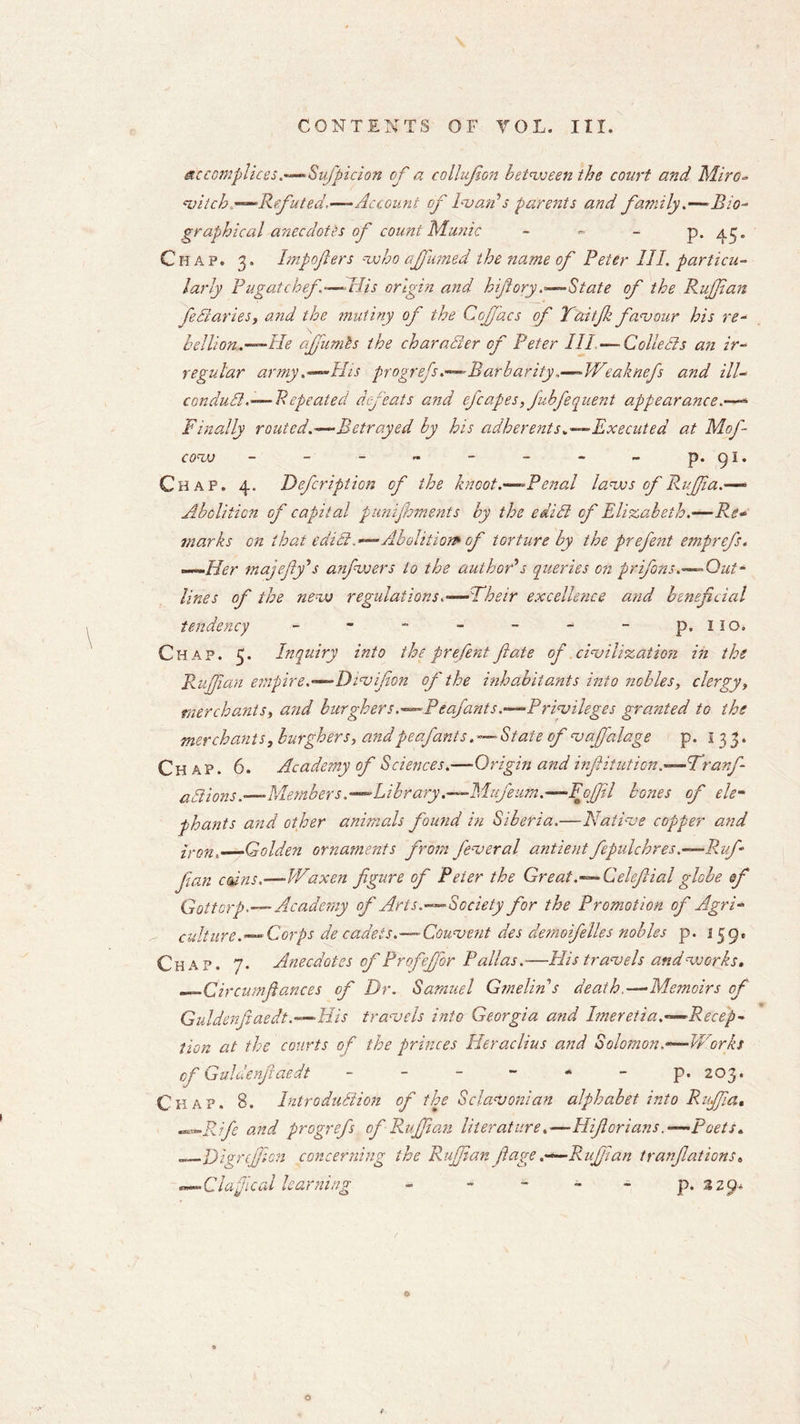 CONTENTS OF VOL. III.
accomplices.—Suſpicion of a colluſion between the court and Miro-
vitch.—Refuted.—Account of Ivan's parents and family.—Bio-
graphical anecdotes of count Munic - - - p. 45.
CHAP. 3. Impoſters who aſſumed the name of Peter III. particu-
larly Pugatchef.—His origin and hiſtory.—State of the Ruſſian
ſectaries, and the mutiny of the Coſſacs of Yaitſk favour his re-
bellion.—He aſſumes the character of Peter III.—Collects an ir-
regular army.—His progreſs.—Barbarity.—Weakneſs and ill-
conduct.—Repeated defeats and eſcapes, ſubſequent appearance.—
Finally routed.—Betrayed by his adherents.—Executed at Moſ-
cow - - - - - - - - p. 91.
CHAP. 4. Deſcription of the knoot.—Penal laws of Ruſſia.—
Abolition of capital puniſhments by the edict of Elizabeth.—Re-
marks on that edict.—Abolition of torture by the preſent empreſs.
—Her majeſty's anſwers to the author's queries on priſons.—Out-
lines of the new regulations.—Their excellence and beneficial
tendency - - - - - - - p. 110.
CHAP. 5. Inquiry into the preſent ſtate of civilization in the
Ruſſian empire.—Diviſion of the inhabitants into nobles, clergy,
merchants, and burghers.—Peaſants.—Privileges granted to the
merchants, burghers, and peaſants.—State of vaſſalage p. 133.
CHAP. 6. Academy of Sciences.—Origin and inſtitution.—Tranſ-
actions.—Members.—Library.—Muſeum.—Foſſil bones of ele-
phants and other animals found in Siberia.—Native copper and
iron.—Golden ornaments from ſeveral antient ſepulchres.—Ruſ-
ſian coins.—Waxen figure of Peter the Great.—Celeſtial globe of
Gottorp.—Academy of Arts.—Society for the Promotion of Agri-
culture.—Corps de cadets.—Couvent des demoiſelles nobles p. 159.
CHAP. 7. Anecdotes of Profeſſor Pallas.—His travels and works.
—Circumſtances of Dr. Samuel Gmelin's death.—Memoirs of
Guldenſtaedt.—His travels into Georgia and Imeretia.—Recep-
tion at the courts of the princes Heraclius and Solomon.—Works
of Guldenſtaedt - - - - - - p. 203.
CHAP. 8. Introduction of the Sclavonian alphabet into Ruſſia.
—Riſe and progreſs of Ruſſian literature.—Hiſtorians.—Poets.
—Digreſſion concerning the Ruſſian ſtage.—Ruſſian tranſlations.
—Claſſical learning - - - - - p. 229.